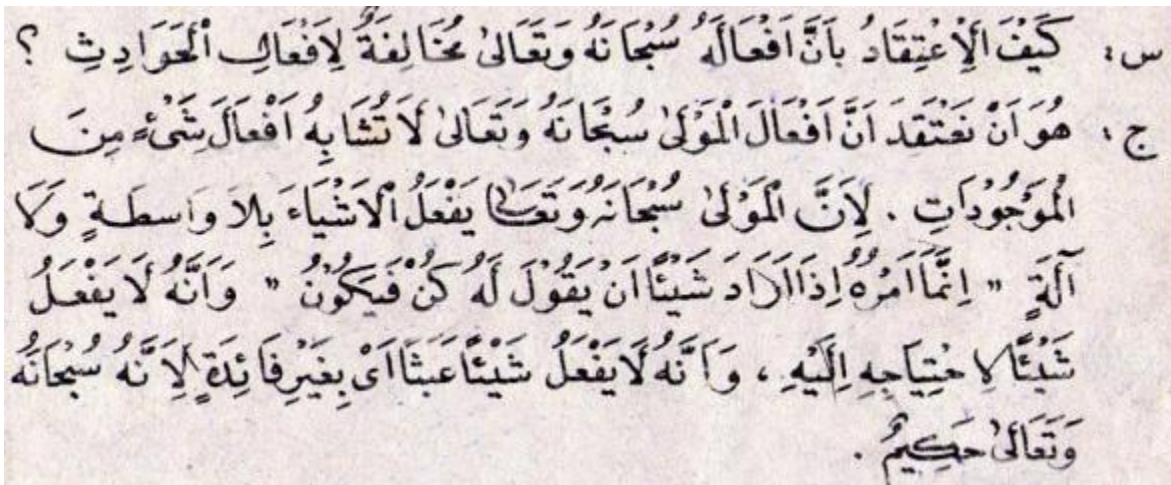 س : كَيْفَ الْاِعْتِقَادُ بِاَنَّ اَفْعَالَهُ سُبْحَانَهُ وَتَعَالىٰ مُخَالِفَةٌ لِاَفْعَالِ الْحَوَادِثِ ؟
ج : هُوَ اَنْ نَعْتَقِدَ اَنَّ اَفْعَالَ الْمَوْلىٰ سُبْحَانَهُ وَتَعَالىٰ لَا تُشَابِهُ اَفْعَالَ شَىْءٍ مِنَ
الْمَوْجُوْدَاتِ . لِاَنَّ الْمَوْلىٰ سُبْحَانَهُ وَتَعَالىٰ يَفْعَلُ الْاَشْيَاءَ بِلَا وَاسطَةٍ وَلَا
آلَةٍ " اِنَّمَا اَمْرُهُ اِذَا اَرَادَ شَيْئًا اَنْ يَقُوْلَ لَهُ كُنْ فَيَكُوْنُ " وَاَنَّهُ لَا يَفْعَلُ
شَيْئًا لِاحْتِيَاجِهِ اِلَيْهِ ، وَاَنَّهُ لَا يَفْعَلُ شَيْئًا عَبَثًا اَىْ بِغَيْرِ فَائِدَةٍ لِاَنَّهُ سُبْحَانَهُ
وَتَعَالىٰ حَكِيْمٌ .